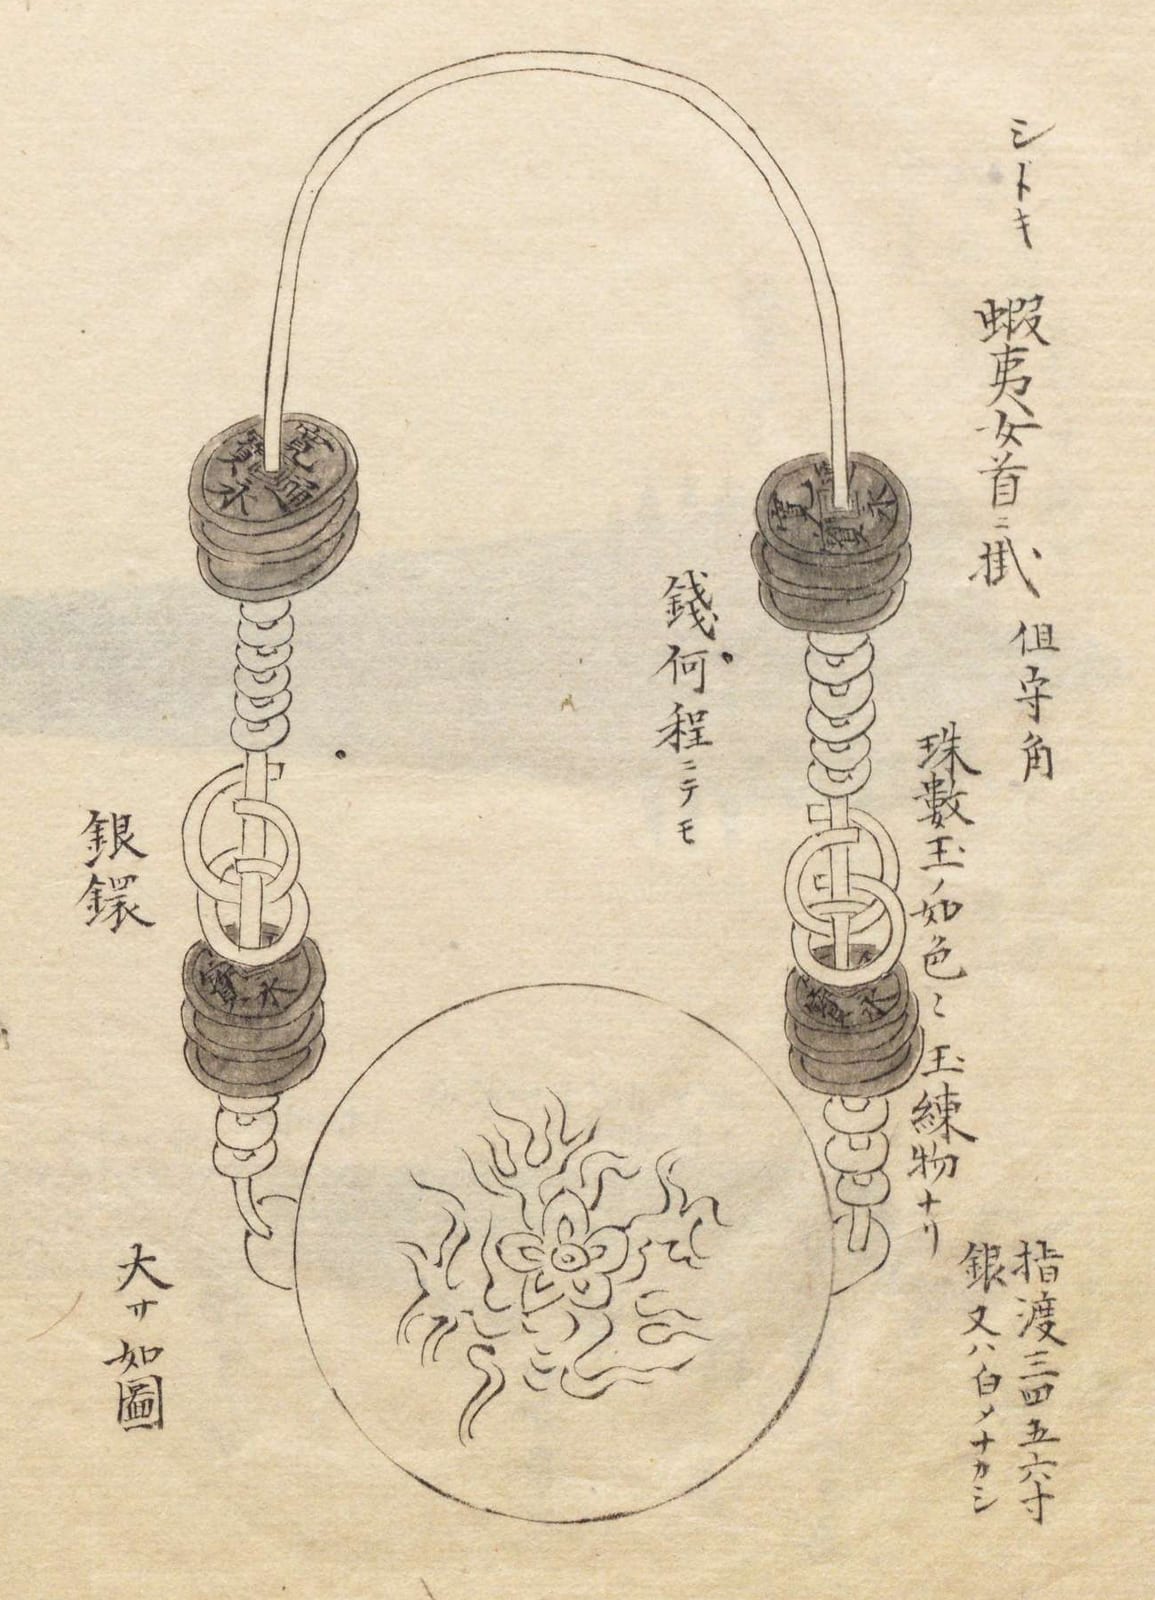 シドキ 蝦夷女首ニ掛 但守角
珠數玉ノ如色〻玉練物ナリ
指渡三四五六寸
銀又ハ白メナカシ
錢何程ニテモ
銀鐶
大サ如圖
寛永
寛永
寳永
寳永